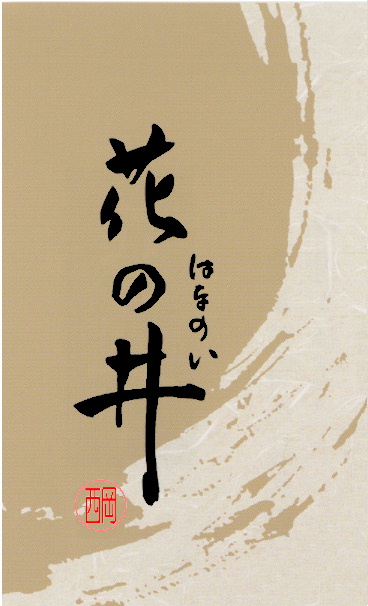 花の井
はなのい
西岡